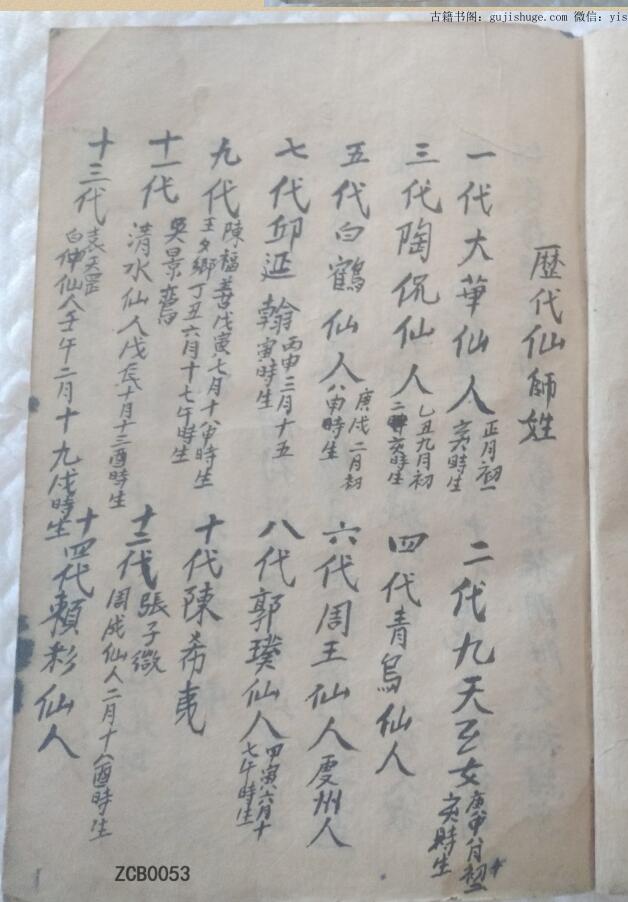 古籍书阁：gujishuge.com 微信：yis
歷代仙師姓
一代大華仙人 正月初一亥時生
二代九天玄女 庚申八月初 亥時生
三代陶侃仙人 乙丑九月初二 亥時生
四代青烏仙人
五代白鶴仙人 庚戌二月初八申時生
六代周王仙人慶州人
七代邱延翰 丙申三月十五寅時生
八代郭璞仙人 甲寅六月十七午時生
九代 陳福善戊寅七月十八申時生
王文鄉丁丑六月十七午時生
十代陳希夷
十一代 吳景鸞
清水仙人戊辰十月十三酉時生
十二代 張子微
周成仙人二月十八酉時生
十三代 袁天罡
白伸仙人壬午二月十九戌時生
十四代賴彩仙人
ZCB0053